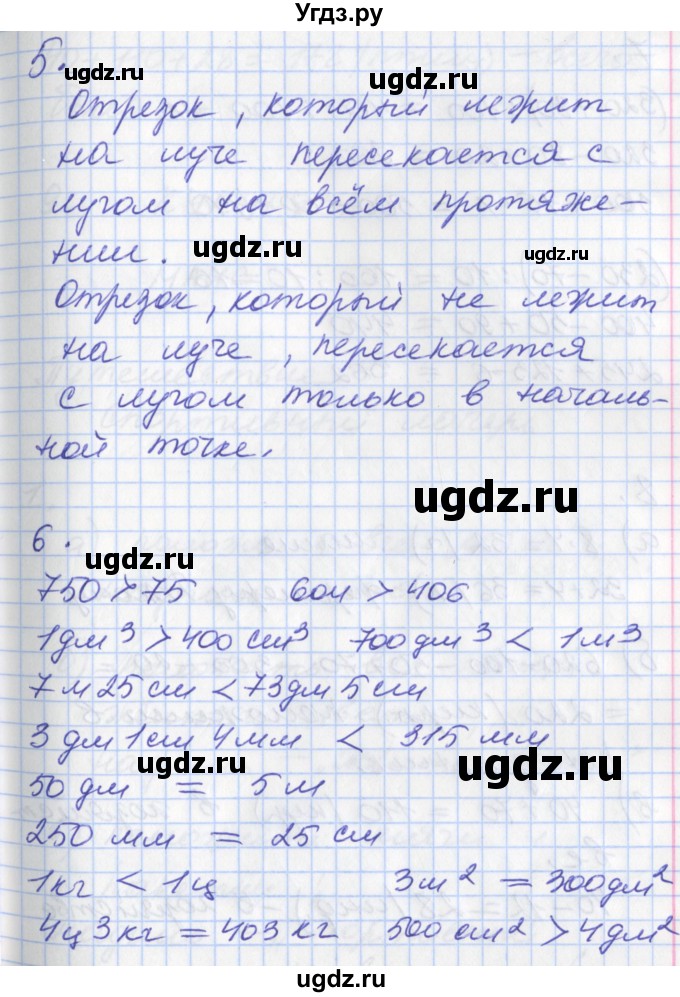 Угдз.ру
5.
ugdz.ru
ugdz.ru
Отрезок, который лежит
на луче пересекается с
лугом на всём протяже-
нии.
ugdz.ru
ugdz.ru
Отрезок, который не лежит
на луче, пересекается
с лугом только в началь-
ной точке.
ugdz.ru
6.
ugdz.ru
750 > 75 604 > 406
1 дм³ > 400 см³ 700 дм³ < 1 м³
7 м 25 см < 73 дм 5 см
3 дм 1 см 4 мм < 315 мм
ugdz.ru
ugdz.ru
50 дм = 5 м
250 мм = 25 см
1 кг < 1 ц 3 м² = 300 дм²
4 ц 3 кг = 403 кг 500 см² > 4 дм²
ugdz.ru